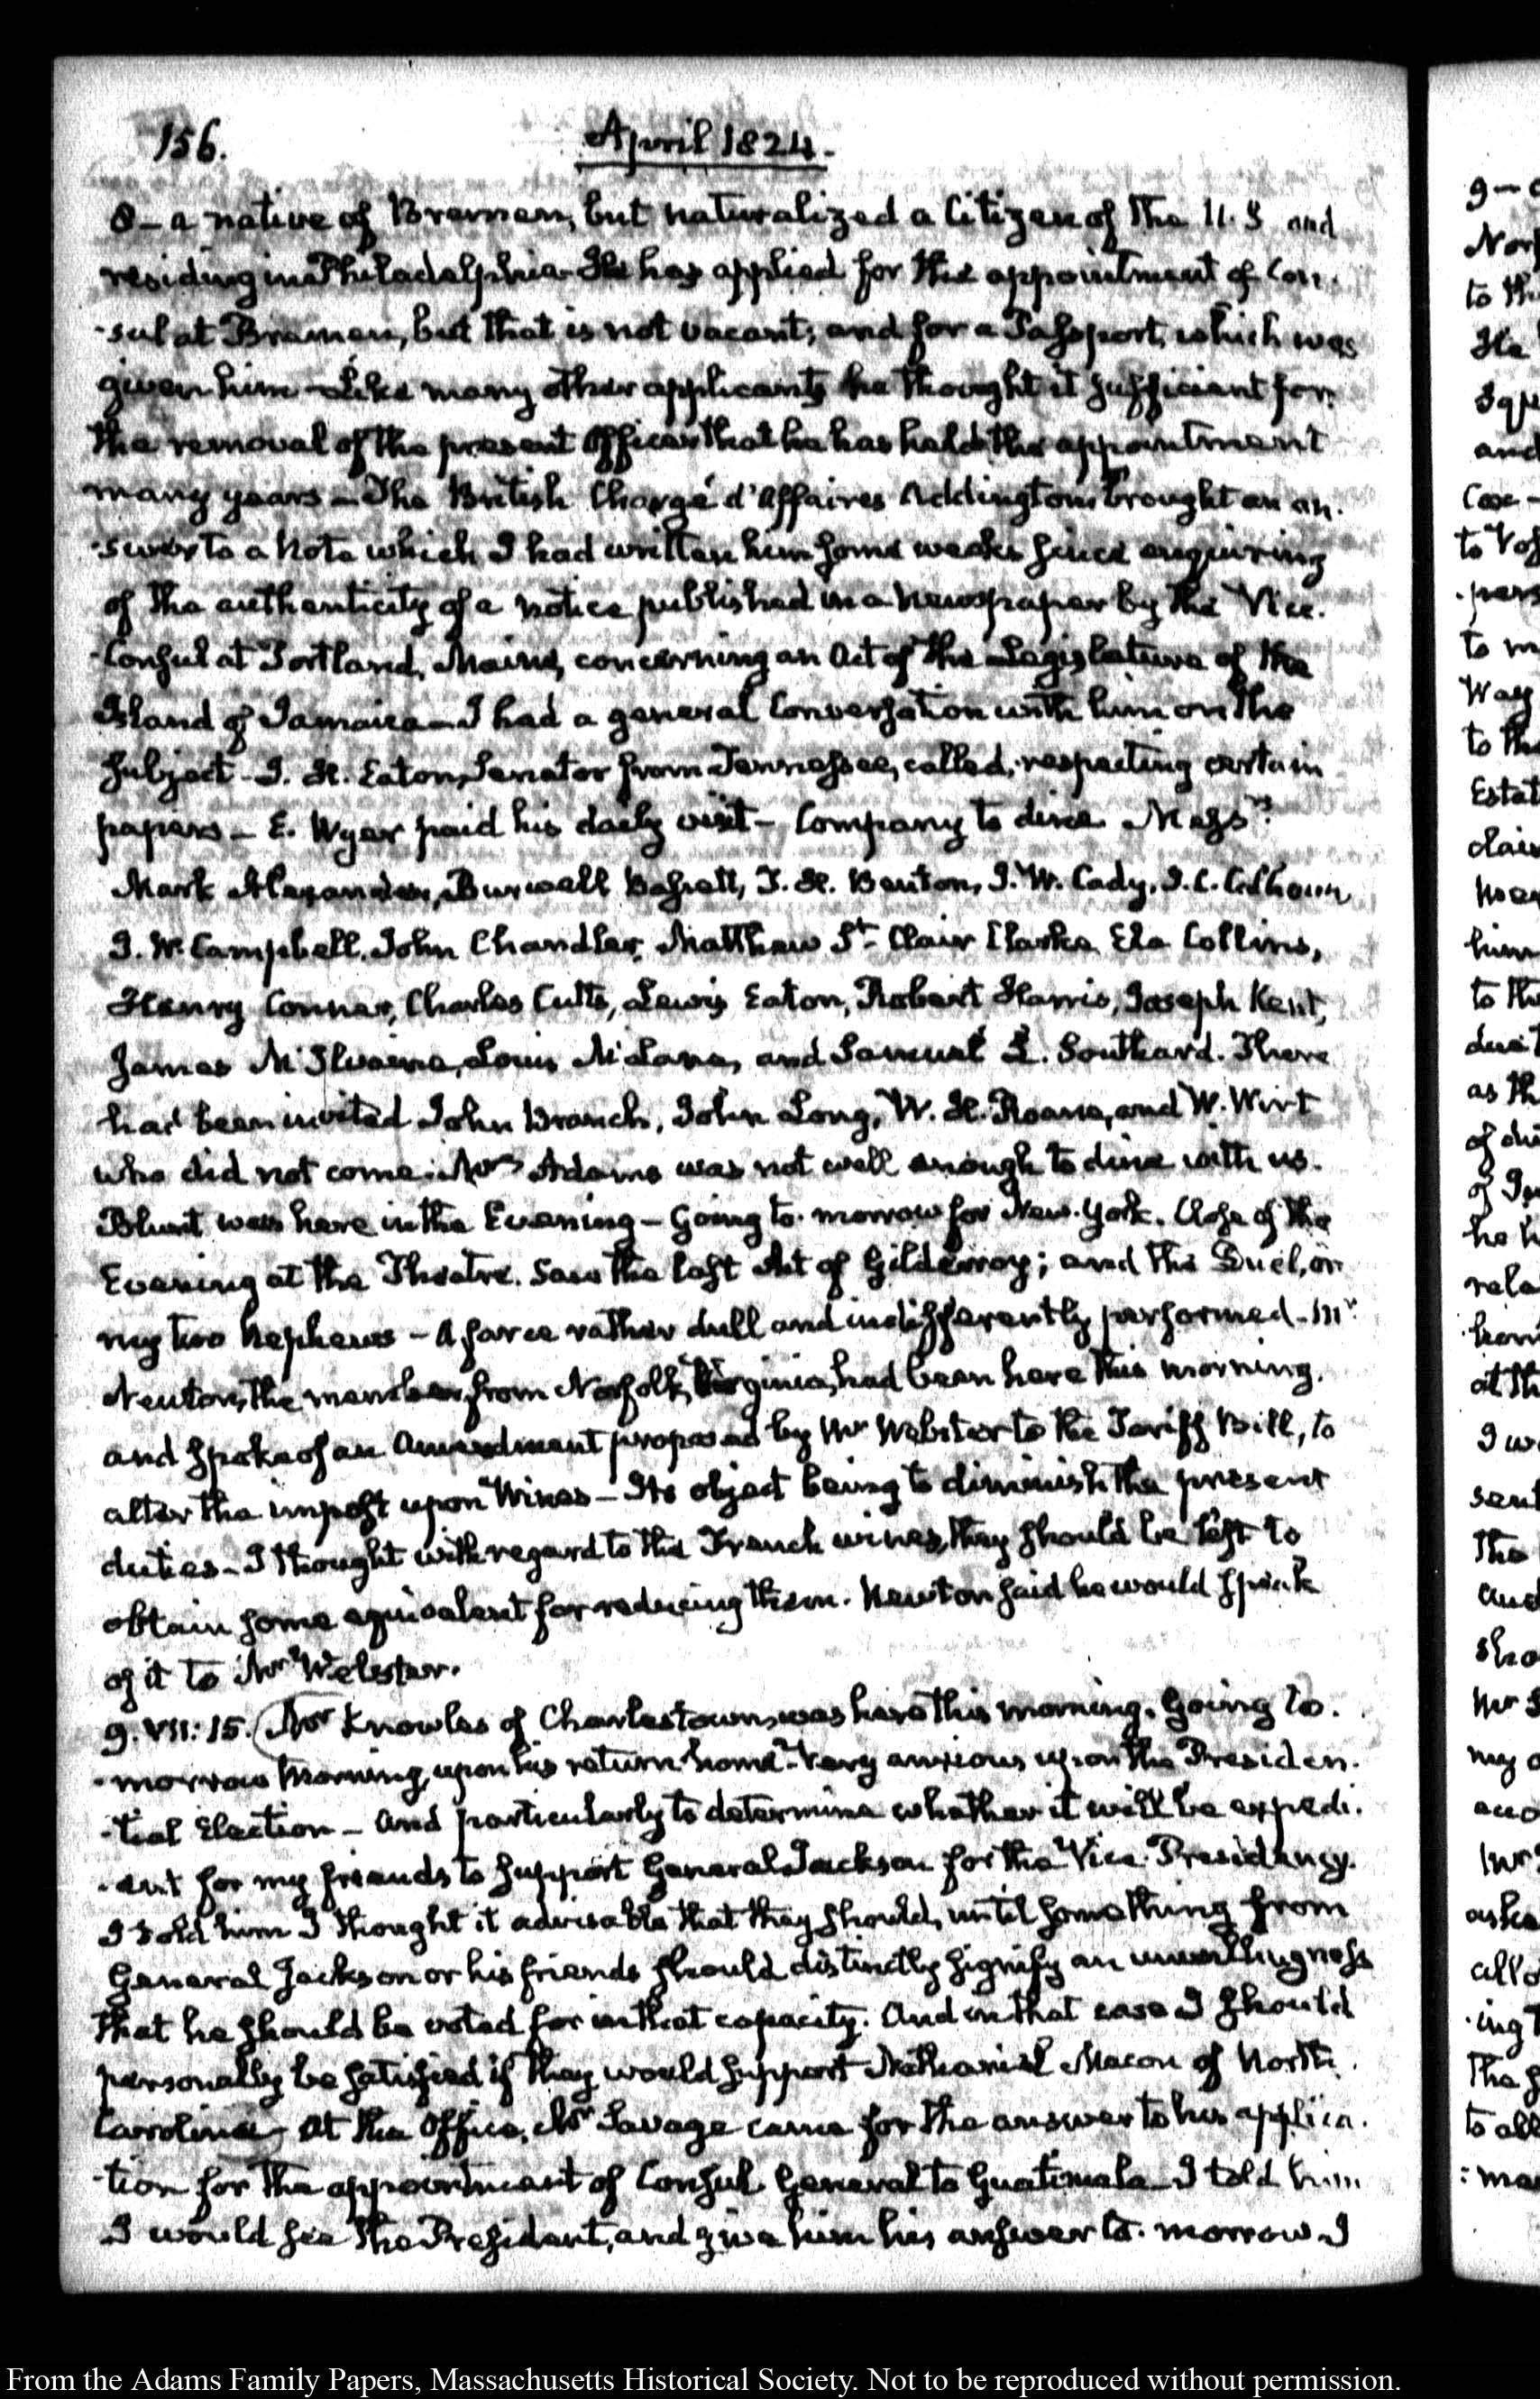 156.
April 1824.
8 — a native of Bremen, but naturalized a Citizen of the U.S and
residing in Philadelphia. He has applied for the appointment of Con-
-sul at Bremen, but that is not vacant; and for a Passport, which was
given him — Like many other applicants he thought it sufficient for
the removal of the present Officer that he has held the appointment
many years — The British Chargé d'Affaires Addington brought an an-
-swer to a Note which I had written him some weeks since enquiring
of the authenticity of a notice published in a Newspaper by the Vice-
-Consul at Portland, Maine, concerning an Act of the Legislature of the
Island of Jamaica — I had a general Conversation with him on the
subject — J. H. Eaton, Senator from Tennessee, called, respecting certain
papers — E. Wyer paid his daily visit — Company to dine Mess.rs
Mark Alexander, Burwell Bassett, T. H. Benton, J. W. Cady, J. C. Calhoun,
J. W. Campbell, John Chandler, Matthew St. Clair Clarke, Ela Collins,
Henry Conner, Charles Cutts, Lewis Eaton, Robert Harris, Joseph Kent,
James McIlvaine, Louis McLane, and Samuel L. Southard. There
had been invited John Branch, John Long, W. H. Roane, and W. Wirt
who did not come. Mrs Adams was not well enough to dine with us.
Blunt was here in the Evening — Going to-morrow for New-York. Close of the
Evening at the Theatre. Saw the last Act of Gilderoy; and the Duel, or
my two Nephews — A farce rather dull and indifferently performed — Mr
Newton, the member from Norfolk, Virginia, had been here this morning,
and spoke of an Amendment proposed by Mr Webster to the Tariff Bill, to
alter the impost upon Wines — Its object being to diminish the present
duties — I thought with regard to the French wines, they should be left to
obtain some equivalent for reducing them. Newton said he would speak
of it to Mr Webster.
9. VII: 15. Mr Knowles of Charlestown, was here this morning. Going to-
-morrow morning, upon his return home — Very anxious upon the Presiden-
-tial Election — And particularly to determine whether it will be expedi-
-ent for my friends to support General Jackson for the Vice-Presidency.
I told him I thought it advisable that they should, until something from
General Jackson or his friends should distinctly signify an unwillingness
that he should be voted for in that capacity. And in that case I should
personally be satisfied if they would support Nathaniel Macon of North-
Carolina — At the Office, Mr Savage came for the answer to his applica-
-tion for the appointment of Consul General to Guatimala — I told him
I would see the President, and give him his answer to-morrow — I
From the Adams Family Papers, Massachusetts Historical Society. Not to be reproduced without permission.